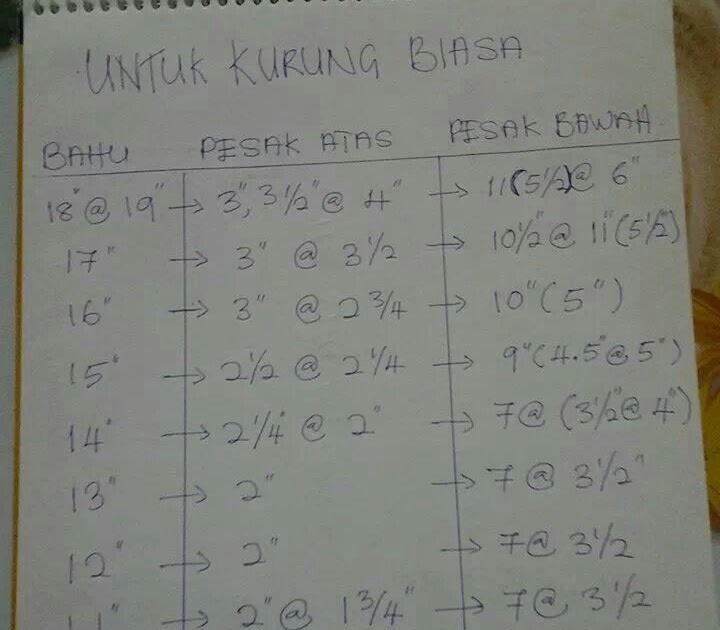 UNTUK KURUNG BIASA
BAHU PESAK ATAS PESAK BAWAH
18" @ 19" → 3", 3 1/2" @ 4" → 11(5 1/2)@ 6"
17" → 3" @ 3 1/2 → 10 1/2" @ 11"(5 1/2")
16" → 3" @ 2 3/4 → 10"(5")
15" → 2 1/2 @ 2 1/4 → 9"(4.5"@5")
14" → 2 1/4" @ 2" → 7@ (3 1/2"@ 4")
13" → 2" → 7 @ 3 1/2"
12" → 2" → 7@ 3 1/2
11" → 2"@ 1 3/4" → 7@ 3 1/2